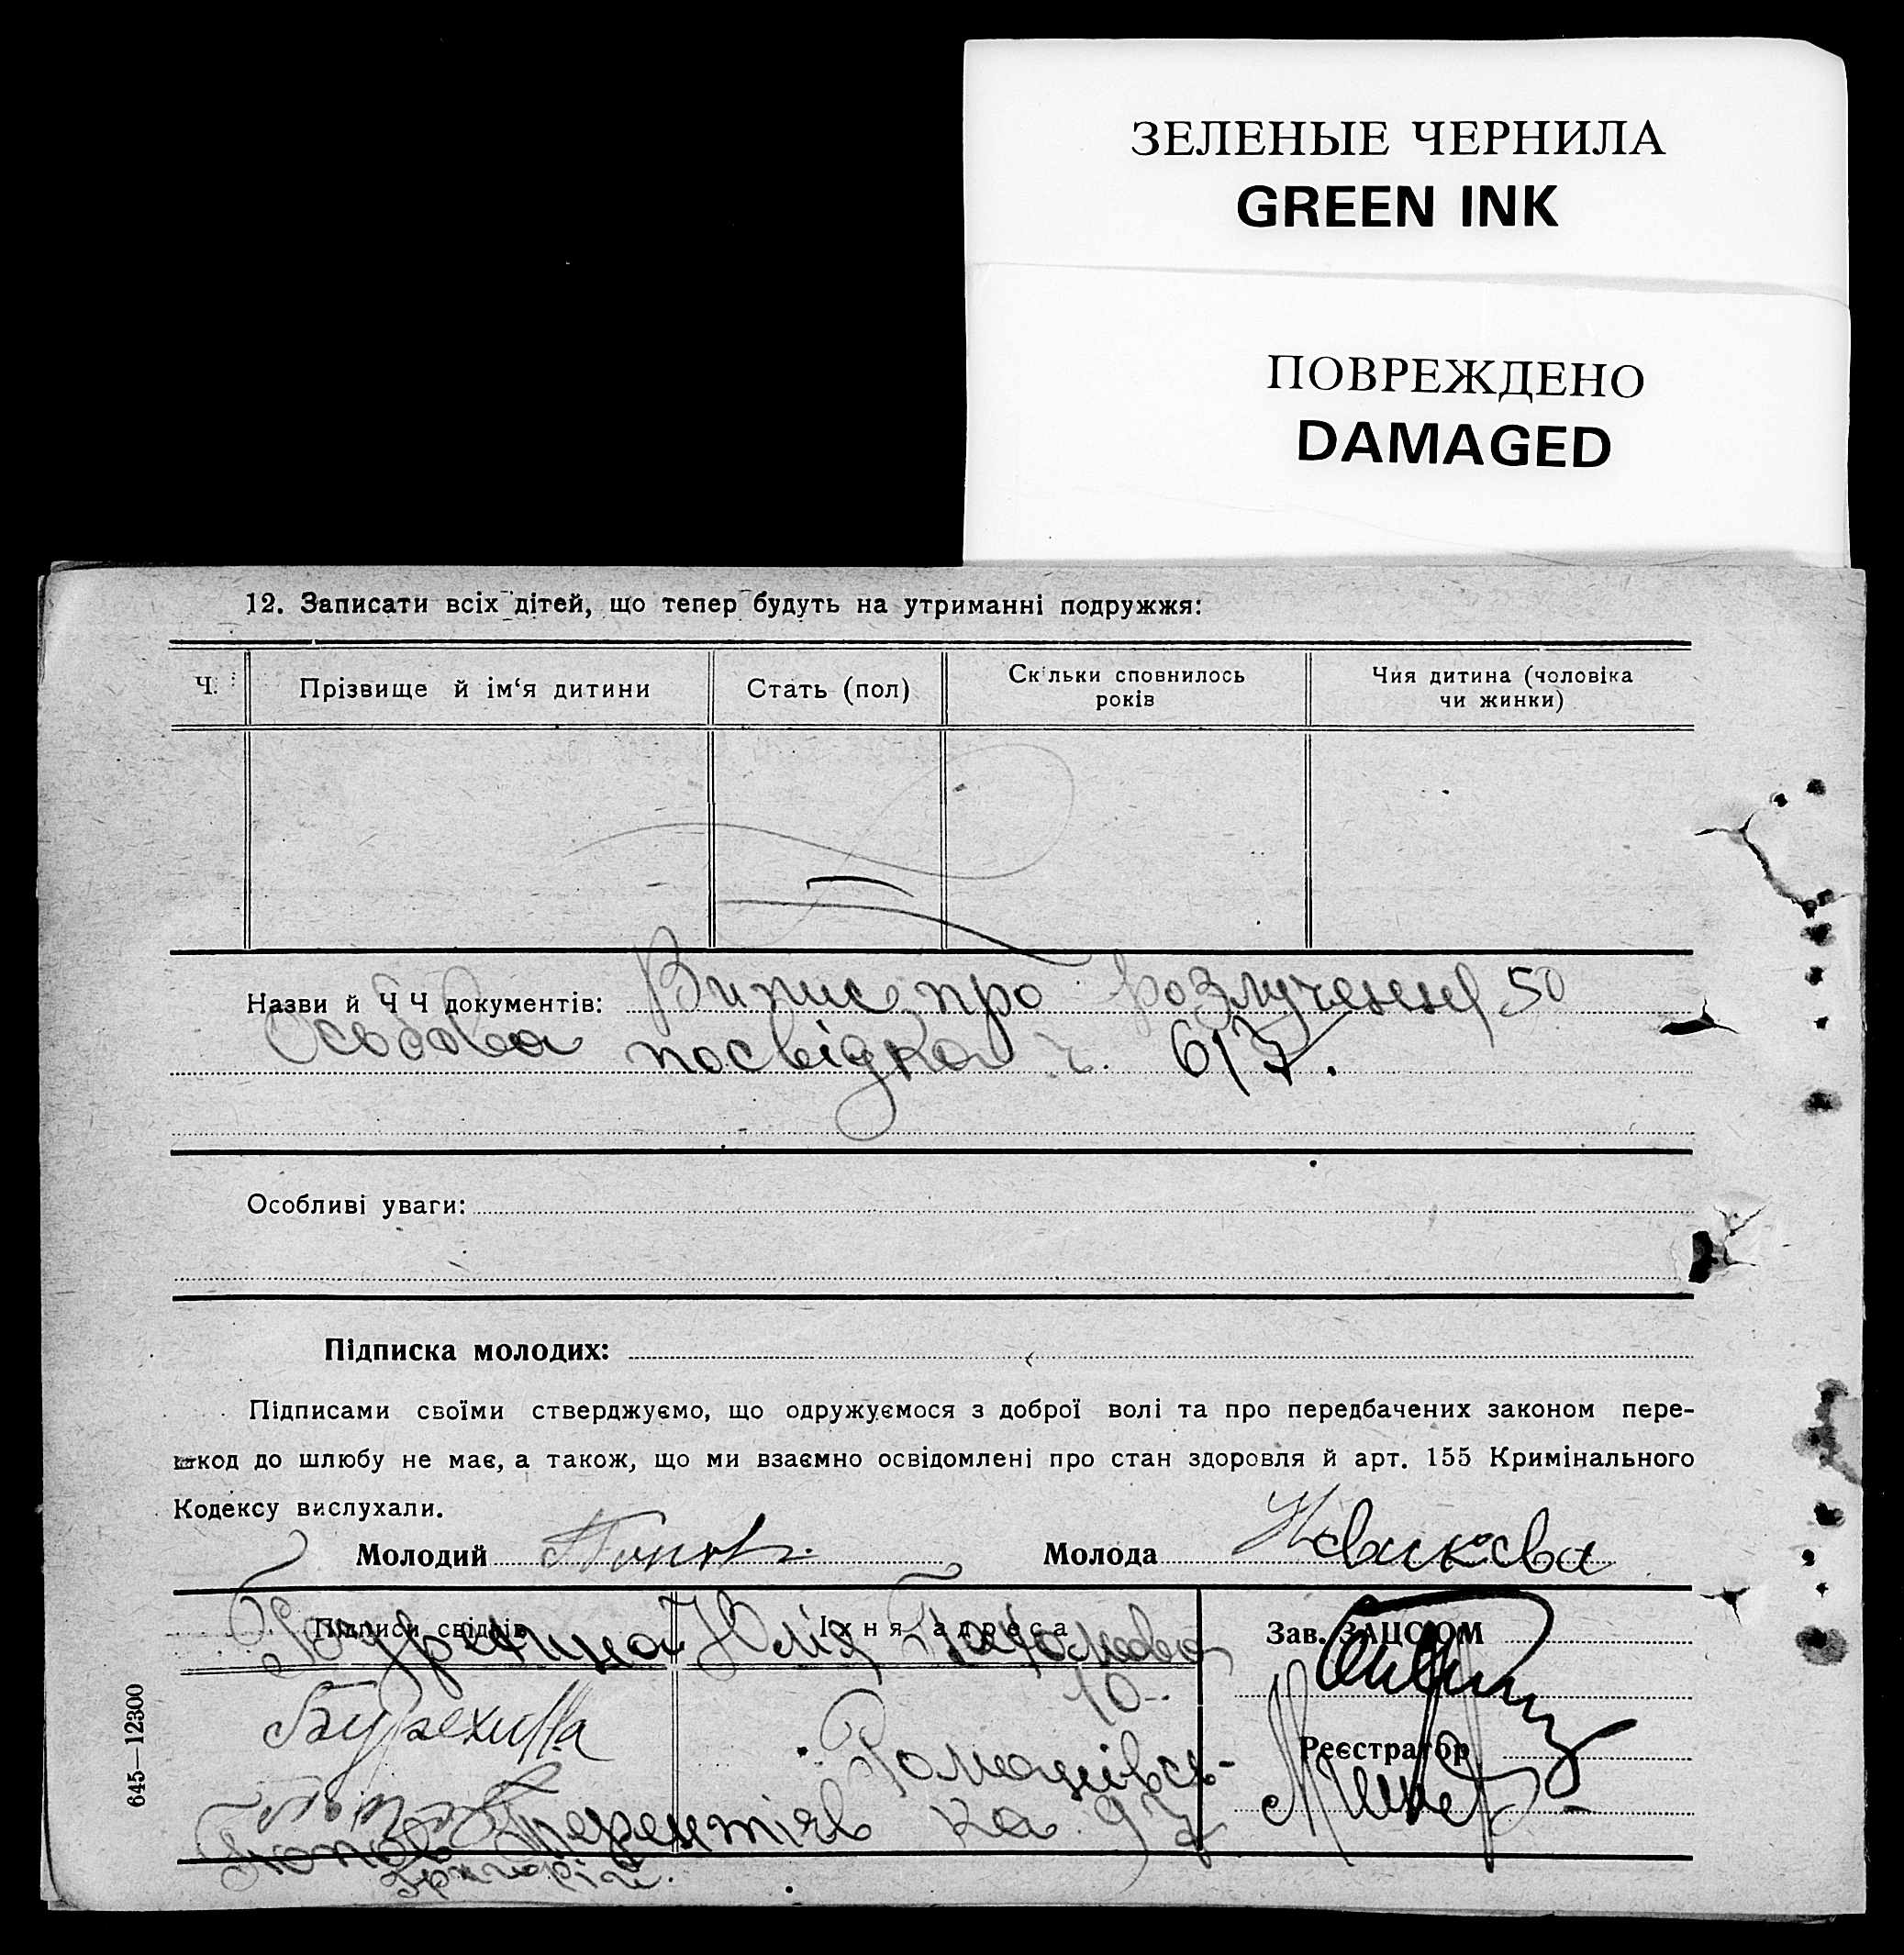 ЗЕЛЕНЫЕ ЧЕРНИЛА
GREEN INK
ПОВРЕЖДЕНО
DAMAGED
12. Записати всіх дітей, що тепер будуть на утриманні подружжя:
Ч. Прізвище й ім‘я дитини Стать (пол) Скільки сповнилось років Чия дитина (чоловіка чи жинки)
Назви й Ч Ч документів: Випис про розлучення 50
Особова посвідка ч. 617.
Особливі уваги:
Підписка молодих:
Підписами своїми стверджуємо, що одружуємося з доброї волі та про передбачених законом пере-
шкод до шлюбу не має, а також, що ми взаємно освідомлені про стан здоровля й арт. 155 Кримінального
Кодексу вислухали.
Молодий Попов Молода Новикова
Підписи свідків Їхня адреса Зав. ЗАЦСОМ
Юлія
10
Романівсь-
Реєстратор
Попов Терентіів ка 97
Григорій.
645—12300